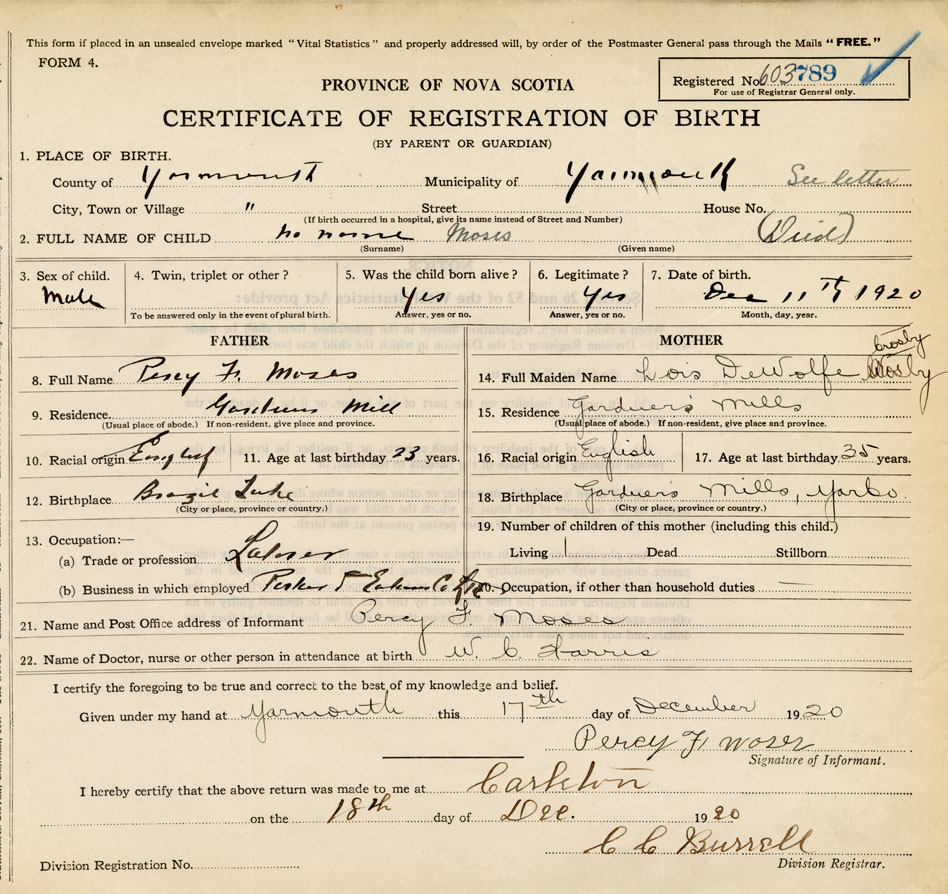 This form if placed in an unsealed envelope marked "Vital Statistics" and properly addressed will, by order of the Postmaster General pass through the Mails "FREE."
FORM 4.
Registered No. 603789
For use of Registrar General only.
PROVINCE OF NOVA SCOTIA
CERTIFICATE OF REGISTRATION OF BIRTH
(BY PARENT OR GUARDIAN)
1. PLACE OF BIRTH.
County of Yarmouth Municipality of Yarmouth See letter
City, Town or Village " Street House No.
(If birth occurred in a hospital, give its name instead of Street and Number)
2. FULL NAME OF CHILD no name Moses (Died)
(Surname) (Given name)
3. Sex of child. 4. Twin, triplet or other? 5. Was the child born alive? 6. Legitimate? 7. Date of birth.
Male Yes Yes Dec 11th 1920
To be answered only in the event of plural birth. Answer, yes or no. Answer, yes or no. Month, day, year.
FATHER
8. Full Name Percy F. Moses
9. Residence Gardners Mill
(Usual place of abode.) If non-resident, give place and province.
10. Racial origin English 11. Age at last birthday 23 years.
12. Birthplace Brazil Lake
(City or place, province or country.)
13. Occupation:—
(a) Trade or profession Laborer
(b) Business in which employed Parker & Eakins Co Ltd
MOTHER
Crosby
14. Full Maiden Name Lois DeWolfe
15. Residence Gardner's Mills
(Usual place of abode.) If non-resident, give place and province.
16. Racial origin English 17. Age at last birthday 35 years.
18. Birthplace Gardner's Mills, Yar Co.
(City or place, province or country.)
19. Number of children of this mother (including this child.)
Living Dead Stillborn
20. Occupation, if other than household duties
21. Name and Post Office address of Informant Percy F. Moses
22. Name of Doctor, nurse or other person in attendance at birth W. C. Harris
I certify the foregoing to be true and correct to the best of my knowledge and belief.
Given under my hand at Yarmouth this 17th day of December 1920
Percy F Moses
Signature of Informant.
I hereby certify that the above return was made to me at Carleton
on the 18th day of Dec. 1920
C C Burrell
Division Registration No. Division Registrar.